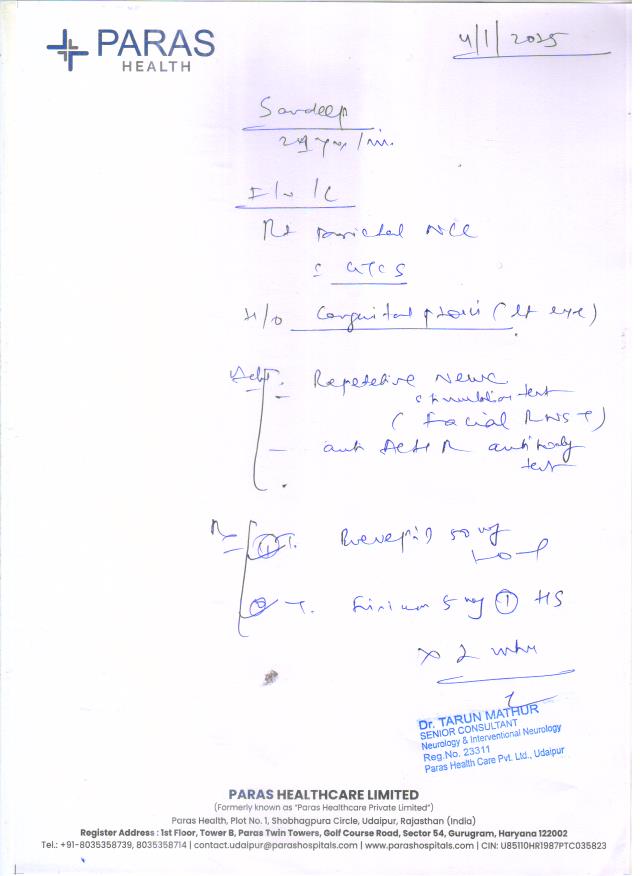 PARAS
HEALTH
4/1/2025
Sandeep
29 yrs/m.
Rt parietal NCC
c GTCS
H/o Congenital ptosis (lt eye)
Adv. Repetetive Nerve
stimulation test
(Facial RNST)
- anti AChR antibody
test
Rx
① T. 50 mg
1-0-1
② T. 5 mg ① HS
x 2 wks
Dr. TARUN MATHUR
SENIOR CONSULTANT
Neurology & Interventional Neurology
Reg.No. 23311
Paras Health Care Pvt. Ltd., Udaipur
PARAS HEALTHCARE LIMITED
(Formerly known as "Paras Healthcare Private Limited")
Paras Health, Plot No. 1, Shobhagpura Circle, Udaipur, Rajasthan (India)
Register Address : 1st Floor, Tower B, Paras Twin Towers, Golf Course Road, Sector 54, Gurugram, Haryana 122002
Tel.: +91-8035358739, 8035358714 | contact.udaipur@parashospitals.com | www.parashospitals.com | CIN: U85110HR1987PTC035823